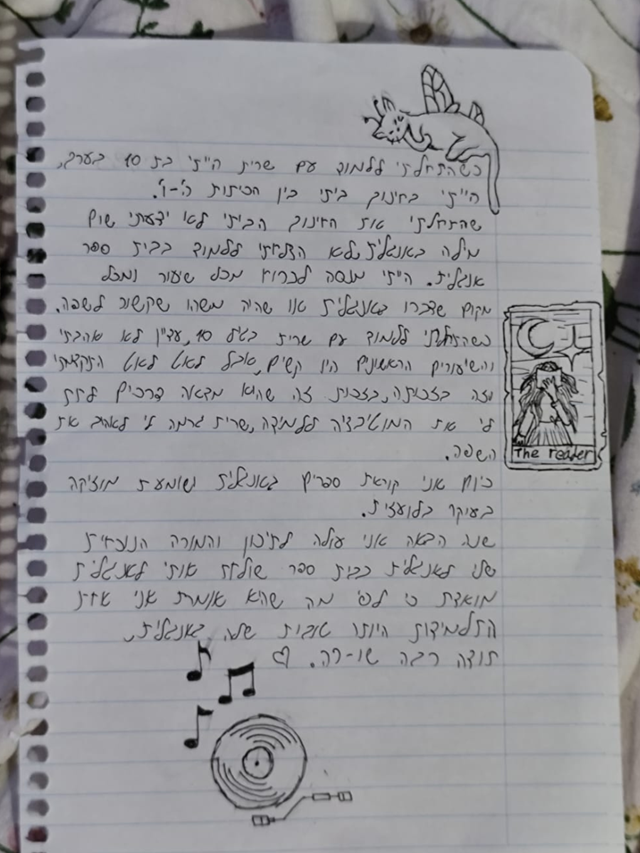 כשהתחלתי ללמוד עם שרית הייתי בת 10 בערך,
הייתי בחינוך ביתי בין הכיתות ה'-ו'.
שהתחלתי את החינוך הביתי לא ידעתי שום
מילה באנגלית, לא הצלחתי ללמוד בבית ספר
אנגלית. הייתי מנסה לברוח מכל שעור ומכל
מקום שדברו באנגלית או שהיה משהו שקשור לשפה.
כשהתחלתי ללמוד עם שרית בגיל 10, עדיין לא אהבתי
והשיעורים הראשונים היו קשים, אבל לאט לאט התקדמתי
וזה בזכותה, בזכות זה שהיא מצאה דרכים לתת
לי את המוטיבציה ללמידה, שרית גרמה לי לאהוב את
השפה.
כיום אני קוראת ספרים באנגלית ושומעת מוזיקה
בעיקר בלועזית.
שנה הבאה אני עולה לתיכון והמורה הנוכחית
שלי לאנגלית בבית ספר שולחת אותי לאנגלית
מואצת כי לפי מה שהיא אומרת אני אחת
התלמידות היותר טובות שלה באנגלית,
תודה רבה שו-רה. ♡
The reader